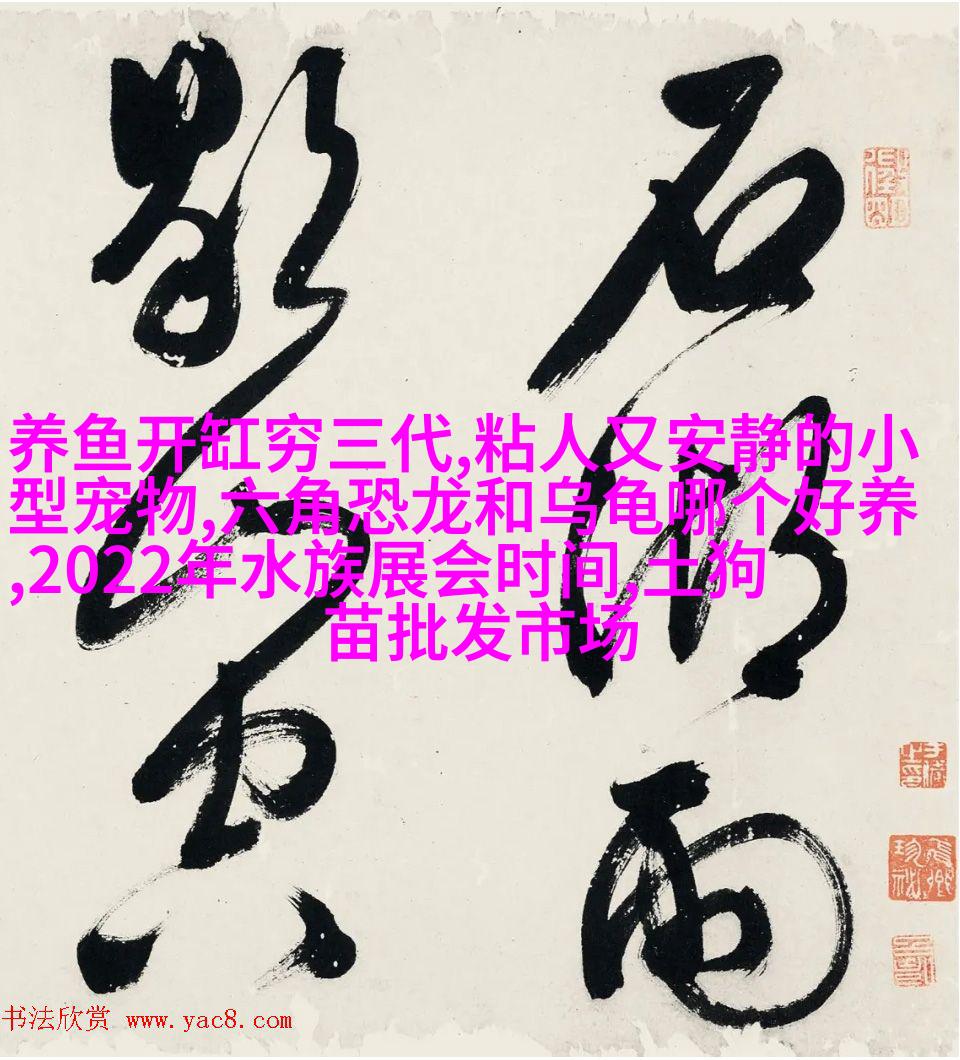 石湖雨
歇山空
养鱼开缸穷三代,粘人又安静的小
型宠物,六角恐龙和乌龟哪个好养
,2022年水族展会时间,土狗
苗批发市场
书法欣赏 www.yac8.com